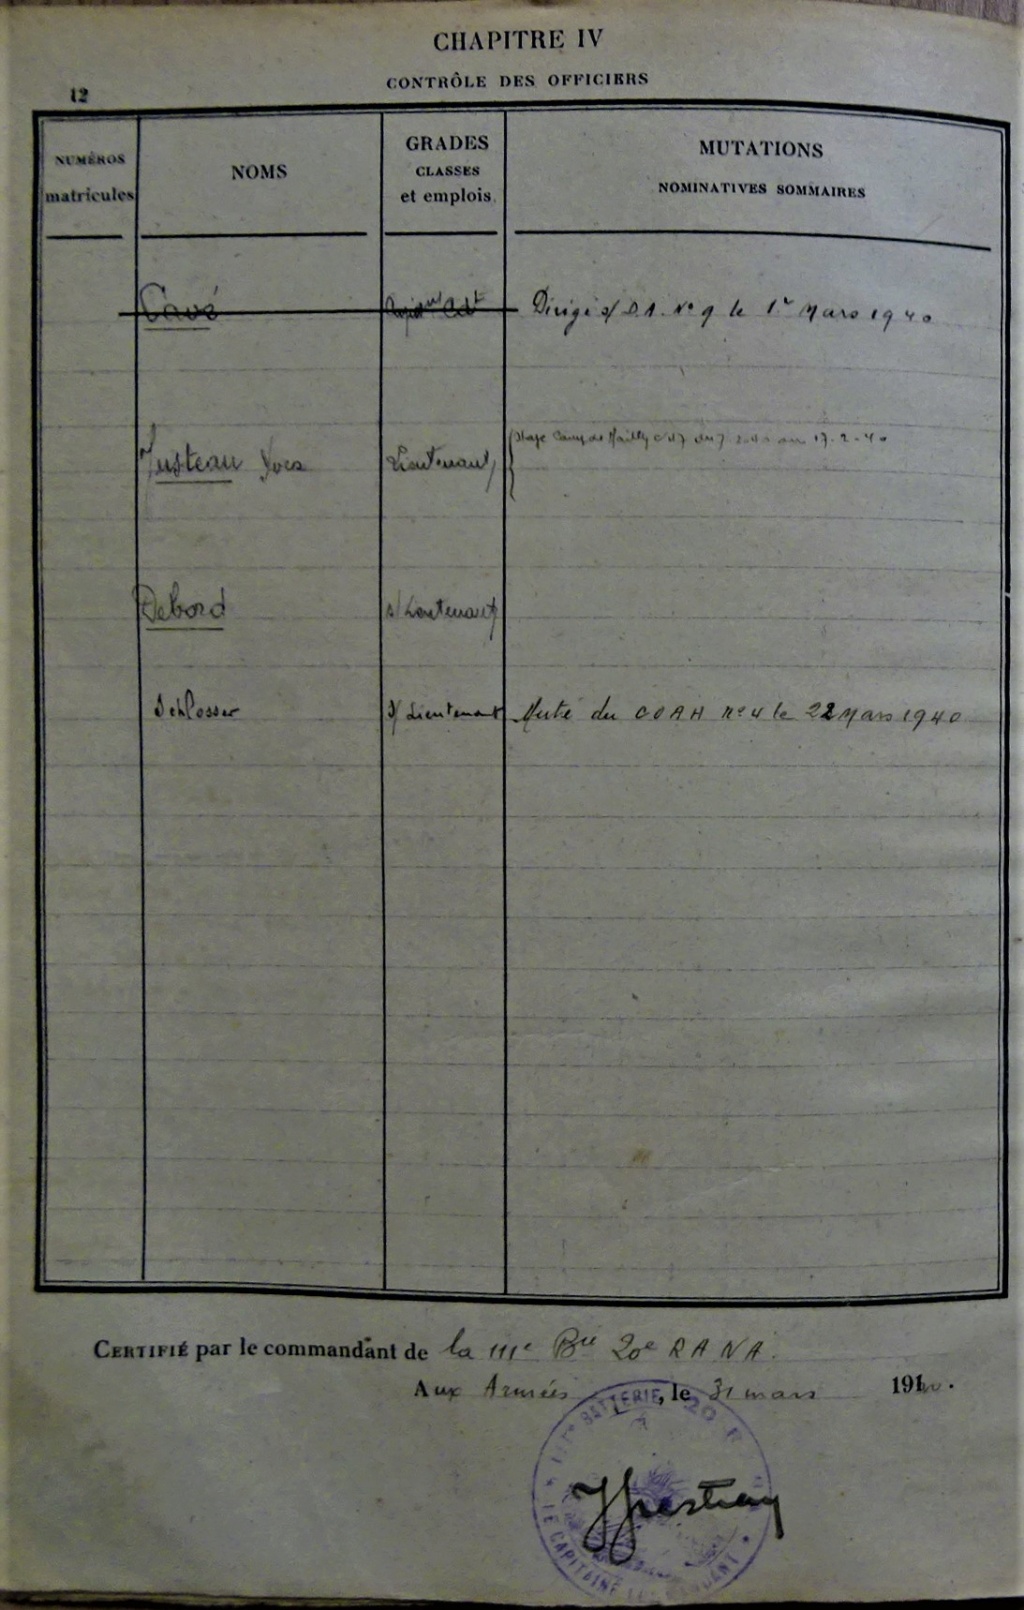 CHAPITRE IV
CONTRÔLE DES OFFICIERS
12
NUMÉROS matricules
NOMS
GRADES CLASSES et emplois
MUTATIONS NOMINATIVES SOMMAIRES
Cavé Cdt Dirigé s/ D.A. No 9 le 1er Mars 1940
Justeau Yves Lieutenant Stage Camp de Mailly du 7 au 17-2-40
Debord s/ Lieutenant
Schlosser s/ Lieutenant Muté du COAH no 4 le 22 Mars 1940
CERTIFIÉ par le commandant de la 111e Bie 20e RANA.
Aux Armées, le 31 mars 1940.
BATTERIE 20 R
LE CAPITAINE COMMANDANT